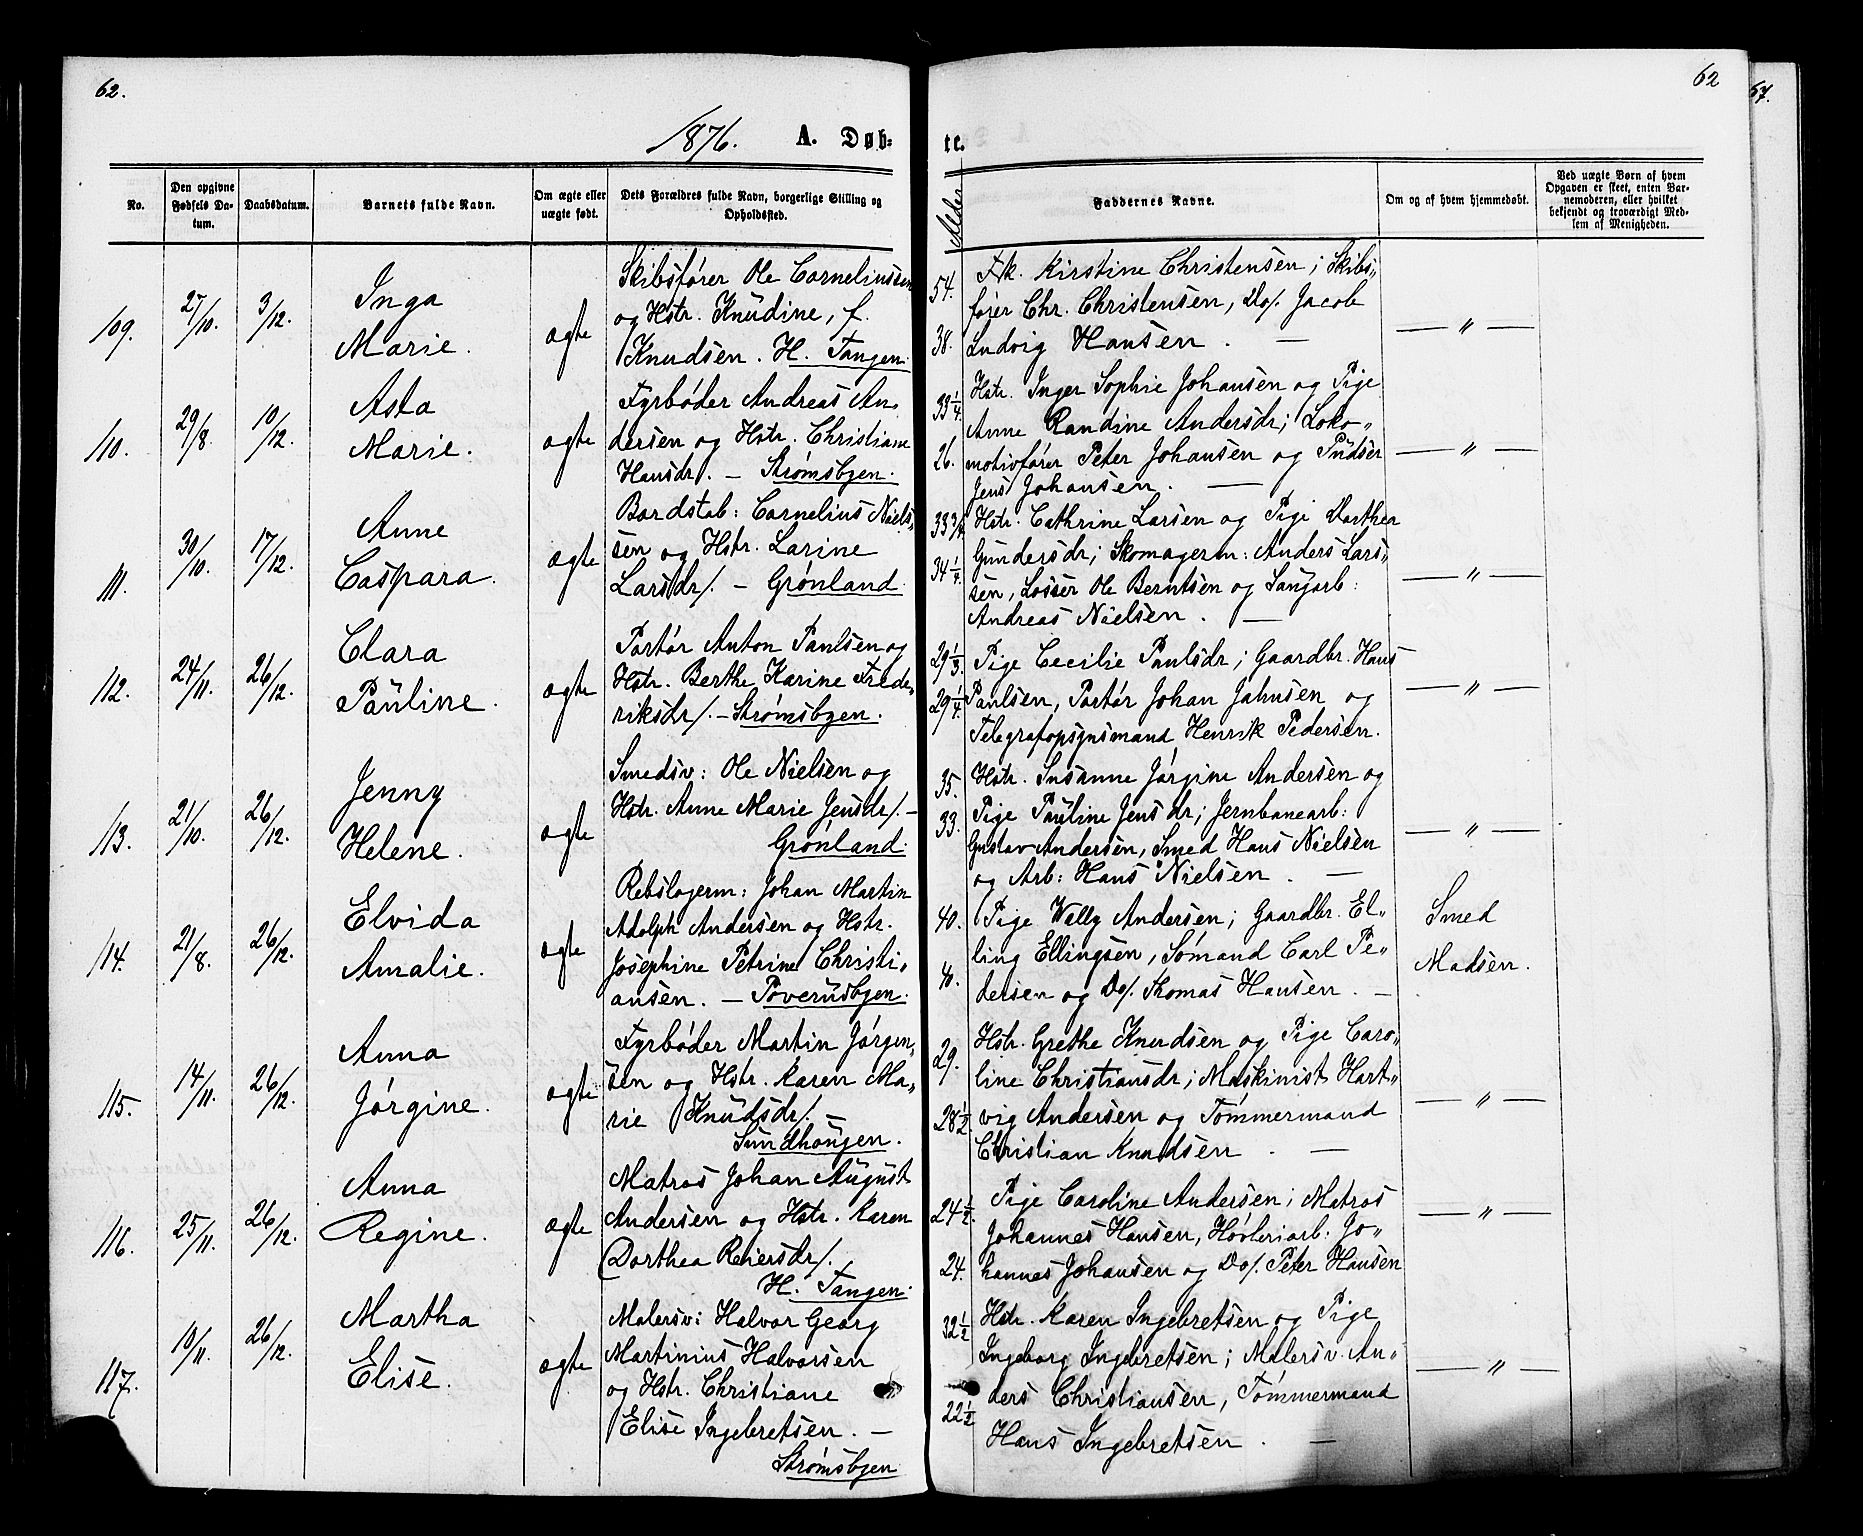 62.
62
57.
1876. A. Døb-
te.
No.
Den opgivne Fødsels Datum.
Daabsdatum.
Barnets fulde Navn.
Om ægte eller uægte født.
Dets Forældres fulde Navn, borgerlige Stilling og Opholdssted.
Alder
Faddernes Navne.
Om og af hvem hjemmedøbt.
Ved uægte Børn af hvem Opgaven er skeet, enten Barnemoderen, eller hvilket bekjendt og troværdigt Medlem af Menigheden.
109. 27/10. 3/12.
Inga
Marie.
ægte
Skibsfører Ole Corneliussen
og Hstr. Knüdine, f.
Knudsen. H. Tangen.
54.
38.
Frk. Kirstine Christensen; Skibs„
fører Chr. Christensen, Do/. Jacob
Ludvig Hansen. —
— „ —
110. 29/8. 10/12.
Asta
Marie.
ægte
Fyrbøder Andreas An„
dersen og Hstr. Christiane
Hansdr/. — Strømsbyen.
33 1/4.
26.
Hstr. Inger Sophie Johansen og Pige
Anne Randine Andersdr; Loko„
motivfører Peter Johansen og Püdser
Jens Johansen. —
— „ —
111. 30/10. 17/12.
Anne
Caspara.
ægte
Bordstab: Cornelius Niels„
sen og Hstr. Larine
Larsdr/. — Grønland.
33 3/4
34 1/4.
Hstr. Cathrine Larsen og Pige Dorthea
Gundersdr; Skomagerm: Anders Lars„
sen, Losser Ole Berntsen og Saugarb:
Andreas Nielsen. —
— „ —
112. 24/11. 26/12.
Clara
Paüline.
ægte
Portør Anton Paulsen og
Hstr. Berthe Karine Frede„
riksdr/. — Strømsbyen.
29 1/3.
29 1/4.
Pige Cecilie Paulsdr; Gaardbr. Hans
Paulsen, Portør Johan Jahnsen og
Telegrafopsynsmand Henrik Pedersen.
— „ —
113. 21/10. 26/12.
Jenny
Helene.
ægte
Smedsv: Ole Nielsen og
Hstr. Anne Marie Jensdr/. —
Grønland.
35.
33.
Hstr. Susanne Jørgine Andersen og
Pige Paüline Jensdr; Jernbanearb:
Gustav Andersen, Smed Hans Nielsen
og Arb: Hans Nielsen. —
— „ —
114. 21/8. 26/12.
Elvida
Amalie.
ægte
Rebslagerm: Johan Martin
Adolph Andersen og Hstr.
Josephine Petrine Christi„
ansen. — Toverüdbyen.
40.
40.
Pige Wally Andersen; Gaardbr. El„
ling Ellingsen, Sømand Carl Pe„
dersen og Do/. Thomas Hansen. —
Smed
Madsen.
115. 14/11. 26/12.
Anna
Jørgine.
ægte
Fyrbøder Martin Jørgen„
sen og Hstr. Karen Ma„
rie Knüdsdr/. —
Sundhougen.
29.
28 1/2.
Hstr. Grethe Knudsen og Pige Caro„
line Christiansdr; Maskinist Hart„
vig Andersen og Tømmermand
Christian Knudsen. —
— „ —
116. 25/11. 26/12.
Anna
Regine.
ægte
Matros Johan August
Andersen og Hstr. Karen
Dorthea Reiersdr/.
H. Tangen.
24 1/2.
24.
Pige Caroline Andersen; Matros
Johannes Hansen, Høvleriarb: Jo„
hannes Johansen og Do/. Peter Hansen
— „ —
117. 10/11. 26/12.
Martha
Elise.
ægte
Malersv: Halvor Georg
Martinius Halvorsen
og Hstr. Christiane
Elise Ingebretsen. —
Strømsbyen
32 1/2
22 1/2
Hstr. Karen Ingebretsen og Pige
Ingeborg Ingebretsen; Malersv. An„
ders Christiansen, Tømmermand
Hans Ingebretsen. —
— „ —